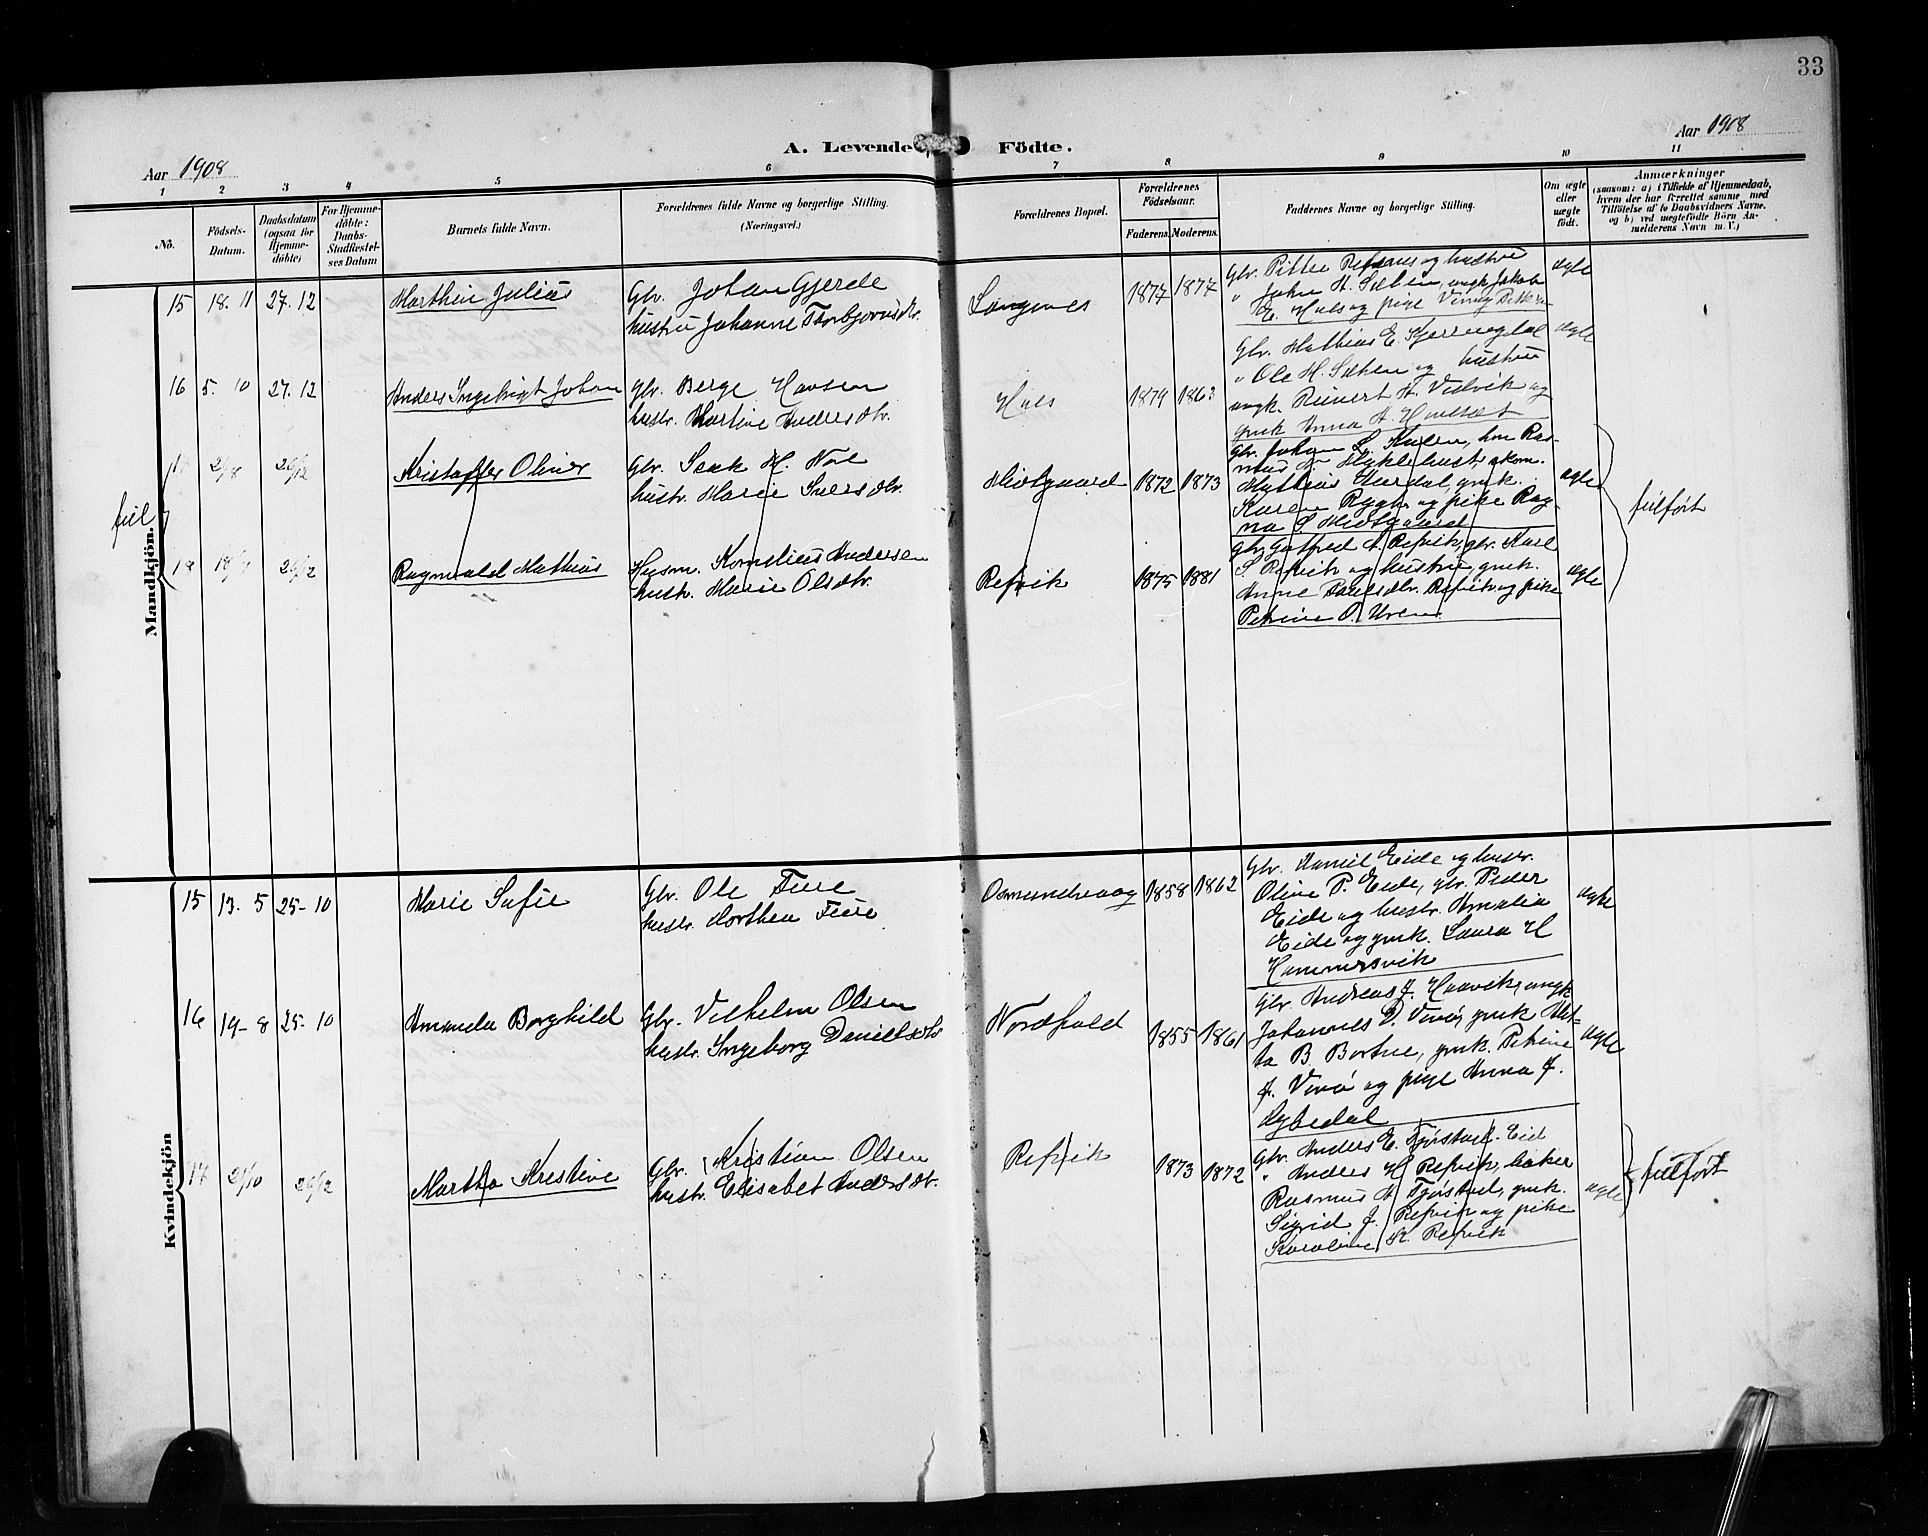 33
Aar 1908
A. Levende Födte.
Aar 1908
1 2 3 4 5 6 7 8 9 10 11
No.
Födsels-
Datum.
Daabsdatum
(ogsaa for
Hjemme-
döbte)
For Hjemme-
döbte:
Daabs-
Stadfæstel-
ses Datum
Barnets fulde Navn.
Forældrenes fulde Navne og borgerlige Stilling.
(Næringsvei.)
Forældrenes Bopæl.
Forældrenes
Födselsaar.
Faderens. Moderens.
Faddernes Navne og borgerlige Stilling.
Om ægte
eller
uægte
födt.
Anmærkninger
(saasom: a) i Tilfælde af Hjemmedaab,
hvem der har forrettet samme med
Tilföielse af to Daabsvidners Navne.
og b) ved uegtefödte Börn An-
melderens Navn m. V.)
Mandkjön.
15 18. 11 27. 12
Marthin Julius
Gbr. Johan Gjerde
hustru Johanne Thorbjørnsdtr.
Langenes
1877 1877
Gbr. Pitter Refsnes og hustru
" John M. Sæben, ungk. Jakob
E. Hals og pige
ægte
16 5. 10 27. 12
Anders Ingebrigt Johan
Gbr. Berge Hansen
hustr. Martine Andersdtr.
Hals
1879 1863
Gbr. Mathias E.
" Ole H. Sæben og hustru
ungk. Reinert A. Vedvik og
pmk Anna A.
ægte
ful
17 2/8 26/12
Kristoffer Oliver
Gbr. Isak H. Nore
hustr. Marie Iversdtr.
Midtgaard
1872 1873
Gbr. Johan S.
Myklebust,
Mathias Aardal, pmk.
Karen Rygh og pike Rag-
na S Midtgaard
ægte
fulført
18 26/12
Ragnvald Mathias
Husm. Kornelius Andersen
hustr. Marie Olsdtr.
Refvik
1875 1881
gbr. Gotfred A. Refvik, gbr. Karl
S. Refvik og hustru, pmk.
Anne Paulsdtr. Refvik og pike
Petrine O. Uren
ægte
Kvindekjön
15 13. 5 25-10
Marie Sofie
Gbr. Ole Feire
hustr. Dorthea Feire
Osmundsvaag
1858 1862
Gbr. Daniel Eide og hustr.
Oline P. Eide, gbr. Peder
Eide og hustr. Amalia
Eide og pmk. Laura H
Hammersvik
ægte
16 19-8 25-10
Amanda Borghild
Gbr. Vilhelm Olsen
hustr. Ingeborg Danielsdtr
Nordpold
1855 1861
Gbr. Andreas J. Haavik, ungk
Johannes D. Vinø, pmk
B. Bortne, pmk. Petrine
J. Vinø og pige Anna J.
Dybedal
ægte
17 2/10 26/12
Martha Kristine
Gbr. Kristian Olsen
hustr. Elisabet Andersdtr.
Refvik
1873 1872
Gbr. Anders E. Tjørstad. Eid
" Anders H Refvik, baker
Rasmus A Tjørstad, pmk.
Sigrid J. Refvik og pike
Karoline K. Refvik
ægte
fulført